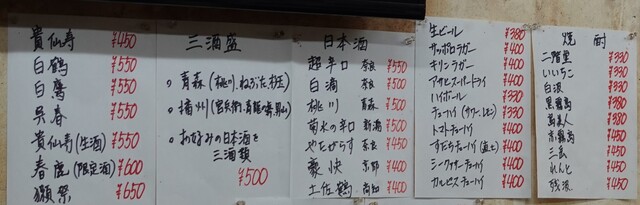 貴仙寿 ¥450
白鶴 ¥550
白鷹 ¥550
呉春 ¥550
貴仙寿(生酒) ¥550
春鹿(限定酒) ¥600
獺祭 ¥650
三酒盛
青森(桃川、ねぶた、杜王)
播州(官兵衛、
お好みの日本酒を
三酒類
¥500
日本酒
超辛口 奈良 ¥550
白滴 奈良 ¥500
桃川 青森 ¥500
菊水の辛口 新潟 ¥500
やたがらす 奈良 ¥400
豪快 京都 ¥400
土佐鶴 高知 ¥400
生ビール ¥380
サッポロラガー ¥400
キリンラガー ¥400
アサヒスーパードライ ¥400
ハイボール ¥330
チューハイ(サワー、レモン) ¥330
トマトチューハイ ¥400
すだちチューハイ ¥400
シークァサーチューハイ ¥400
カルピスチューハイ ¥400
焼酎
二階堂 ¥330
いいちこ ¥330
白波 ¥330
黒霧島 ¥380
島美人 ¥380
赤霧島 ¥450
三岳 ¥450
れんと ¥450
残波 ¥450